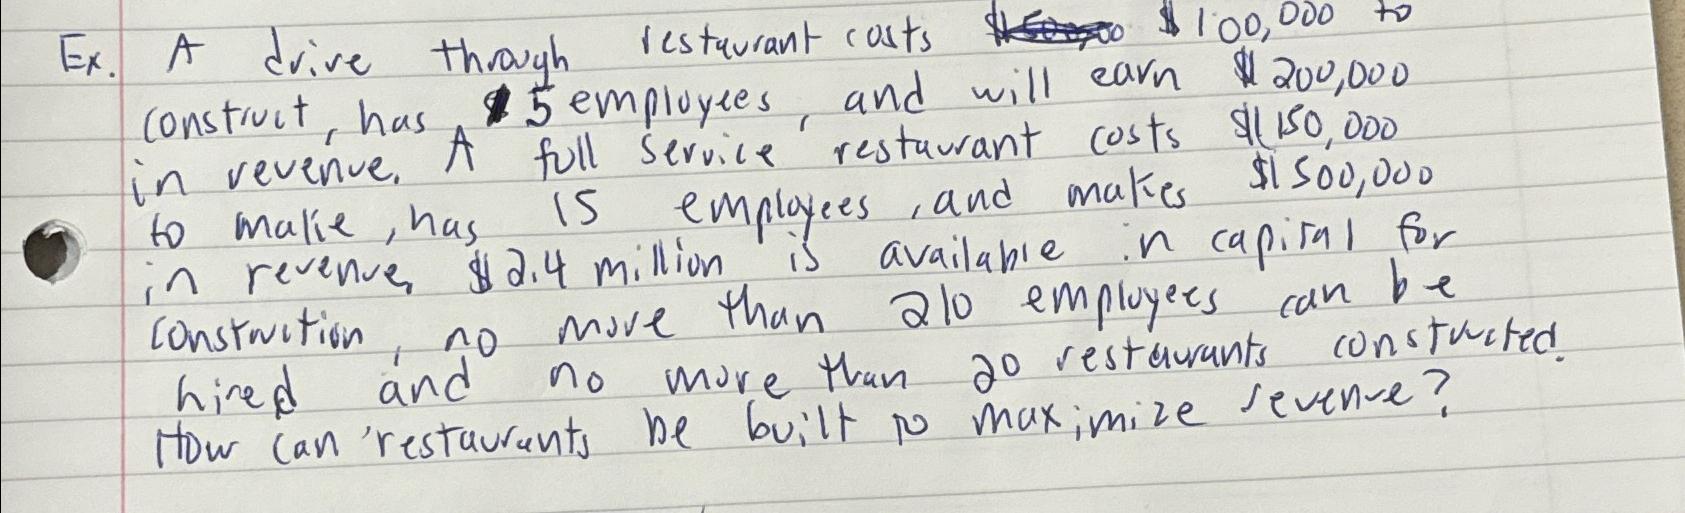 Ex. A drive through restaurant costs $100,000 to
construct, has 5 employees, and will earn $200,000
in revenue. A full service restaurant costs $150,000
to make, has 15 employees, and makes $500,000
in revenue. $2.4 million is available in capital for
construction, no more than 210 employees can be
hired and no more than 20 restaurants constructed.
How can restaurants be built to maximize revenue?